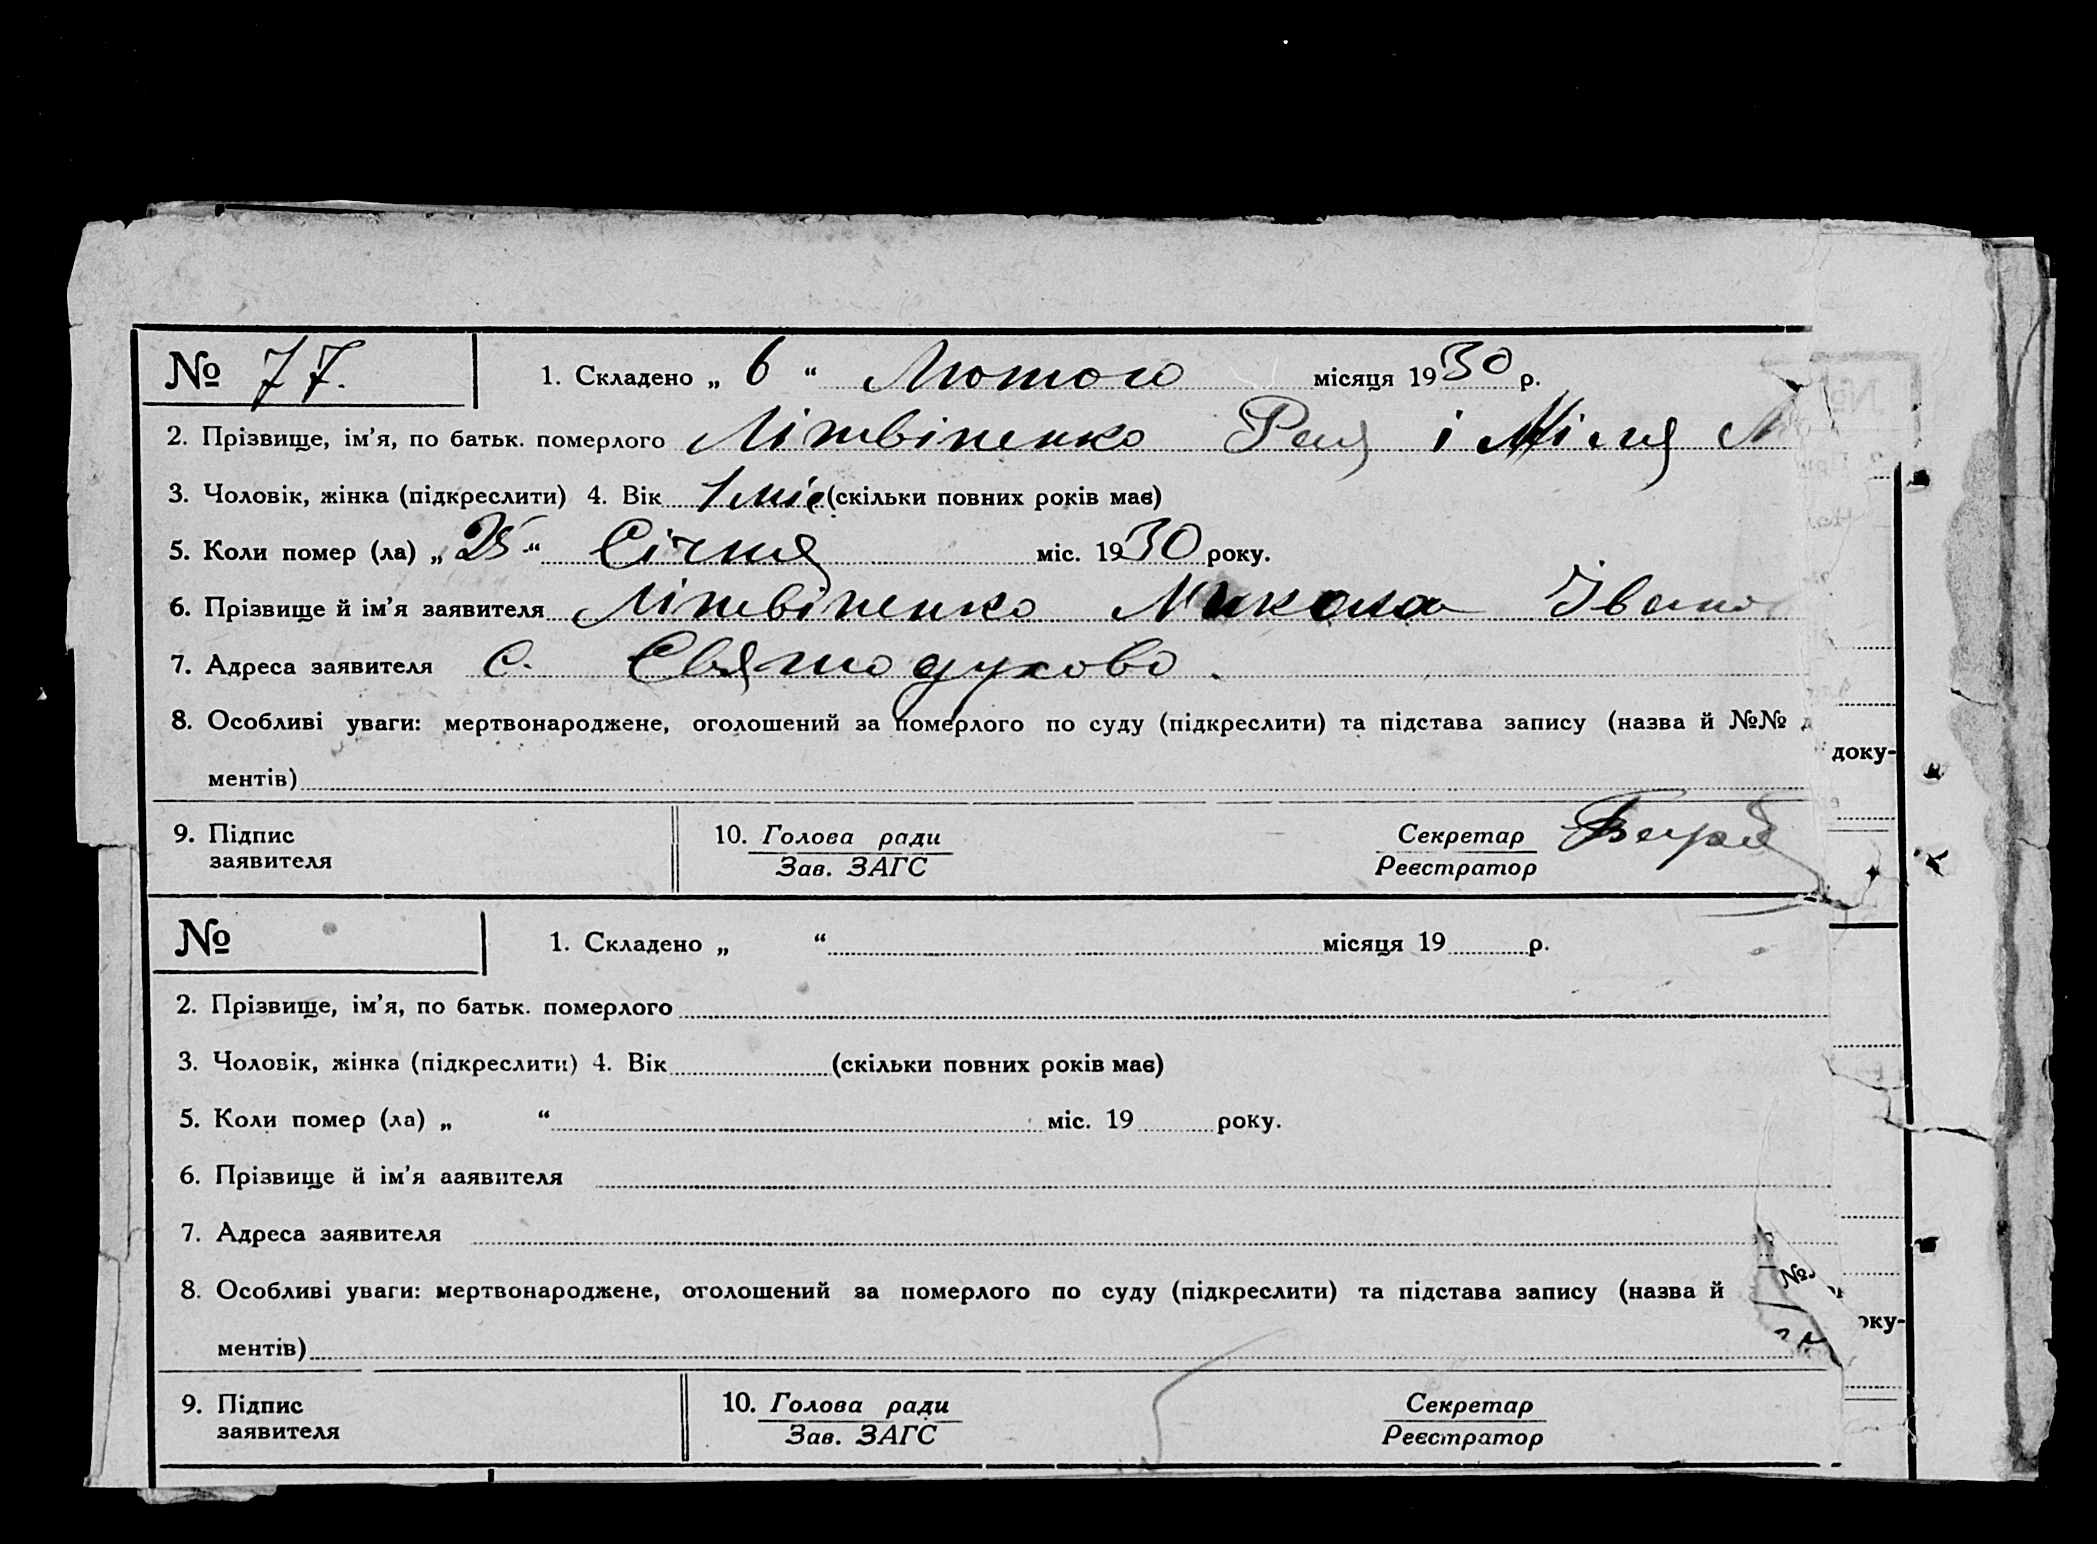 № 77. 1. Складено „ 6 “ Лютого місяця 1930 р.
2. Прізвище, ім’я, по батьк. померлого Літвіненко Рая і Міля
3. Чоловік, жінка (підкреслити) 4. Вік 1 міс (скільки повних років має)
5. Коли помер (ла) „ 25 “ Січня міс. 1930 року.
6. Прізвище й ім’я заявителя Літвіненко Микола Івано
7. Адреса заявителя с. Святодухово.
8. Особливі уваги: мертвонароджене, оголошений за померлого по суду (підкреслити) та підстава запису (назва й №№ д
доку-
ментів)
9. Підпис заявителя 10. Голова ради Секретар
Зав. ЗАГС Реєстратор
№ 1. Складено „ “ місяця 19 р.
2. Прізвище, ім’я, по батьк. померлого
3. Чоловік, жінка (підкреслити) 4. Вік (скільки повних років має)
5. Коли помер (ла) „ “ міс. 19 року.
6. Прізвище й ім’я ааявителя
7. Адреса заявителя
8. Особливі уваги: мертвонароджене, оголошений за померлого по суду (підкреслити) та підстава запису (назва й №
оку-
ментів)
9. Підпис заявителя 10. Голова ради Секретар
Зав. ЗАГС Реєстратор